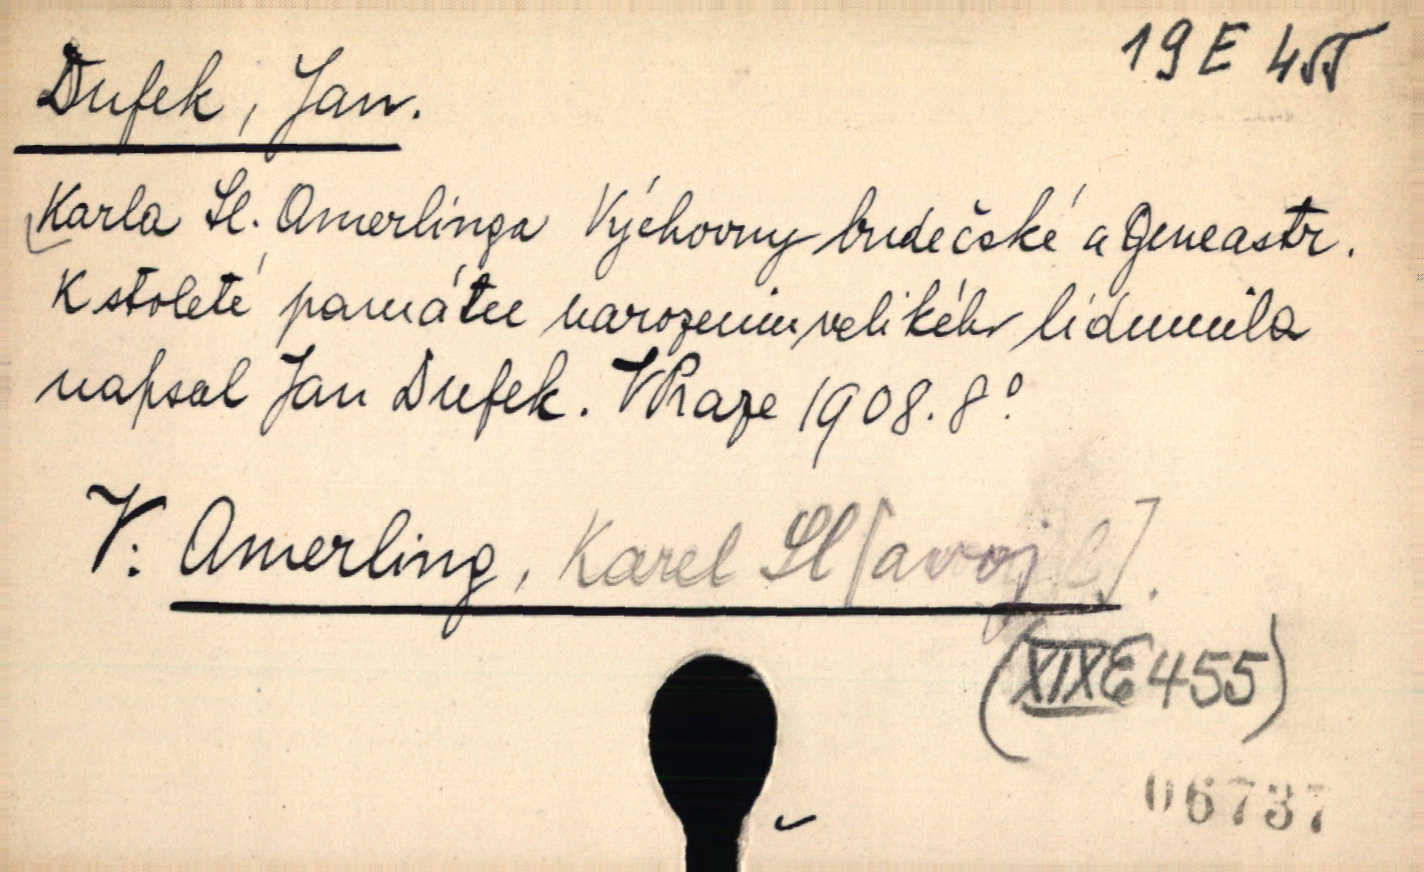 19 E 455
Dufek, Jan.
Karla Sl. Amerlinga Výchovny budečské a Geneastr.
K stoleté památce narozenin velikého lidumila
napsal Jan Dufek. V Praze 1908. 8°.
V: Amerling, Karel Sl[avoj].
(XIX E 455)
06737